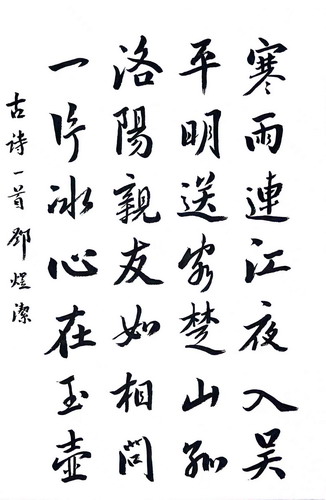 寒雨連江夜入吴
平明送客楚山孤
洛陽親友如相問
一片冰心在玉壺
古诗一首 鄧煜潔